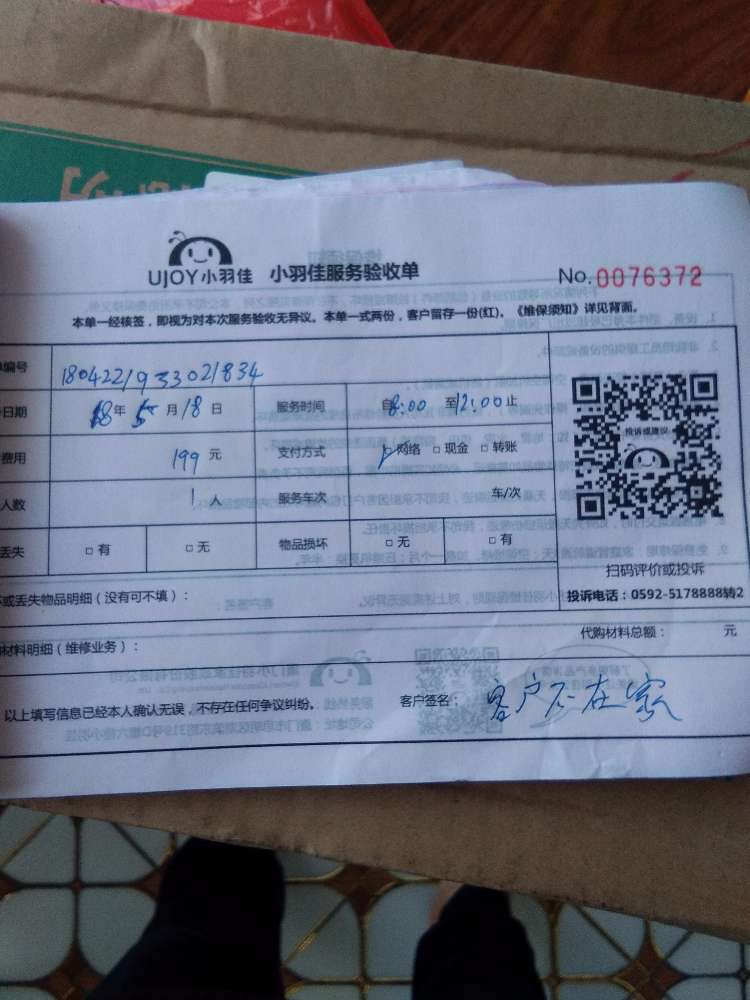 UJOY小羽佳 小羽佳服务验收单 No.0076372
本单一经核签，即视为对本次服务验收无异议。本单一式两份，客户留存一份(红)。《维保须知》详见背面。
单编号 1804221933021834
日期 18年5月18日 服务时间 自8:00至12:00止
费用 199元 支付方式 网络 □现金 □转账
人数 1人 服务车次 车/次
丢失 □有 □无 物品损坏 □无 □有
投诉或建议
扫码评价或投诉
投诉电话：0592-5178888转2
或丢失物品明细（没有可不填）：
材料明细（维修业务）： 代购材料总额： 元
以上填写信息已经本人确认无误，不存在任何争议纠纷。 客户签名：客户不在家